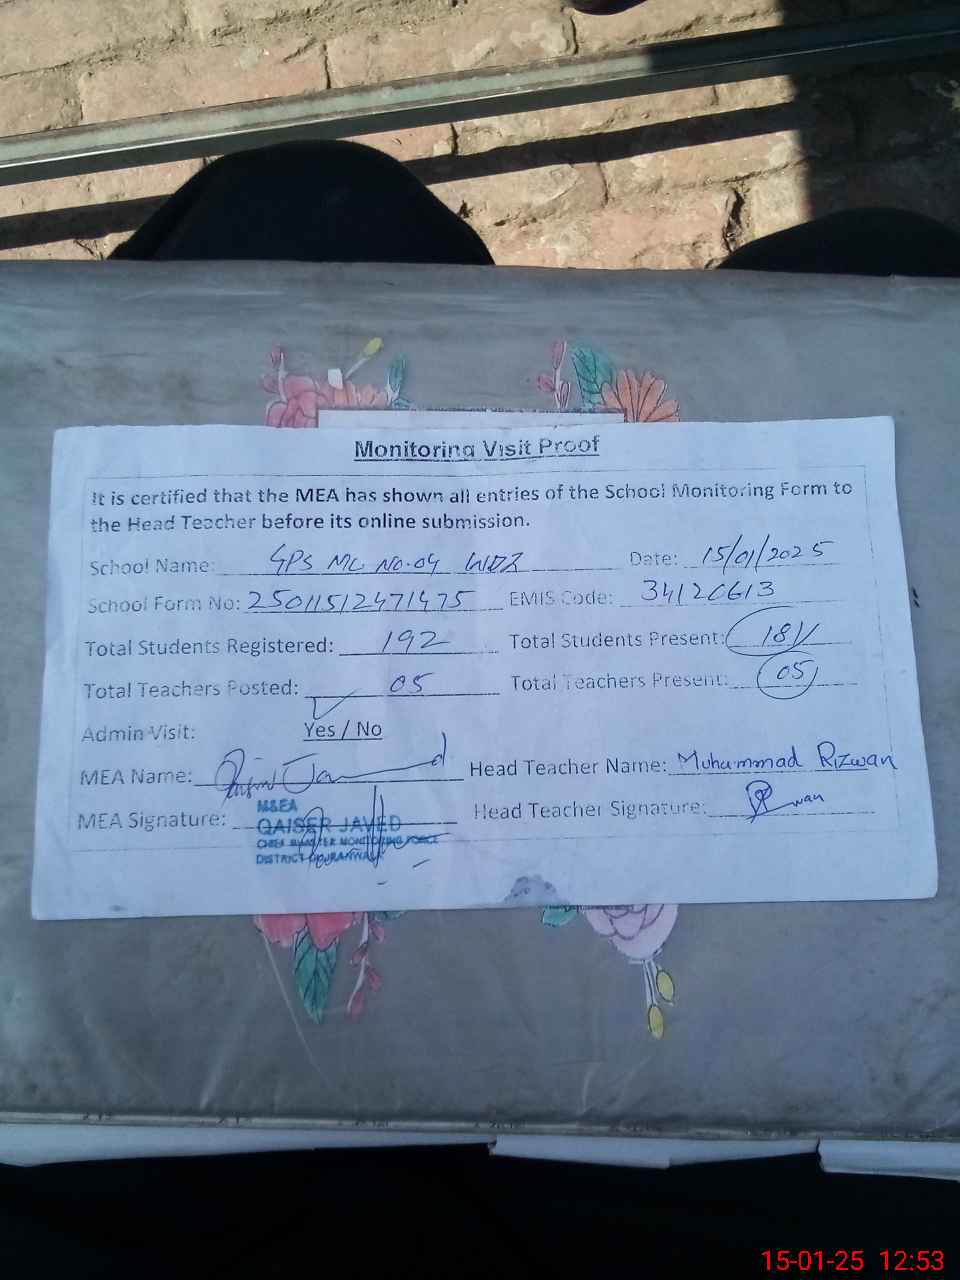 Monitoring Visit Proof
It is certified that the MEA has shown all entries of the School Monitoring Form to
the Head Teacher before its online submission.
School Name: GPS MC No.04 WDZ Date: 15/01/2025
School Form No: 25011512471475 EMIS Code: 34120613
Total Students Registered: 192 Total Students Present: 181
Total Teachers Posted: 05 Total Teachers Present: 05
Admin Visit: Yes / No
MEA Name: Qaiser Javed Head Teacher Name: Muhammad Rizwan
MEA Signature: Head Teacher Signature: Rizwan
M&EA
QAISER JAVED
CHIEF MINISTER MONITORING FORCE
DISTRICT GUJRANWALA
15-01-25 12:53